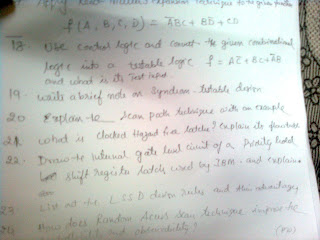 Apply expansion technique to the given problem
f(A, B, C, D) = A̅BC + BD̅ + CD
18. Use control logic and convert the given combinational
logic into a testable logic f = AC̅ + BC + A̅B
and what is its test input.
19. Write a brief note on Syndrom-testable design
20 Explain to scan path technique with an example
21. What is clocked Hazard free latch? explain its function
22. Draw to internal gate level circuit of a Polarity hold
shift register latch used by IBM. and explain
23 List out the LSSD design rules and this advantages
24 How does Random Access scan technique improve the
and observability?
(PTO)